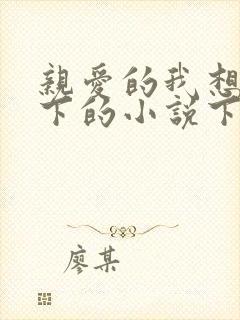 親愛的我想
下的小說下
廖某